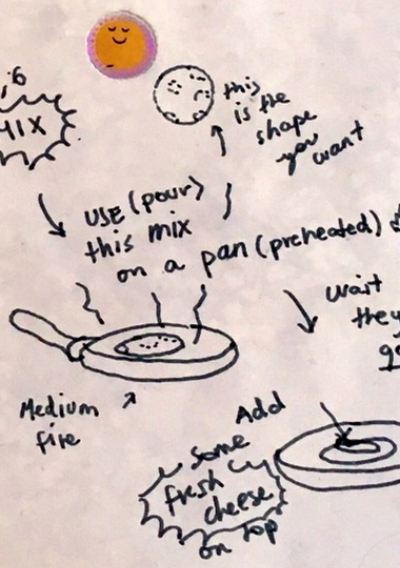 MIX
this
is the
shape
you want
USE (pour)
this mix
on a pan (preheated)
wait
they
Medium
fire
Add
Some
fresh
cheese
on top